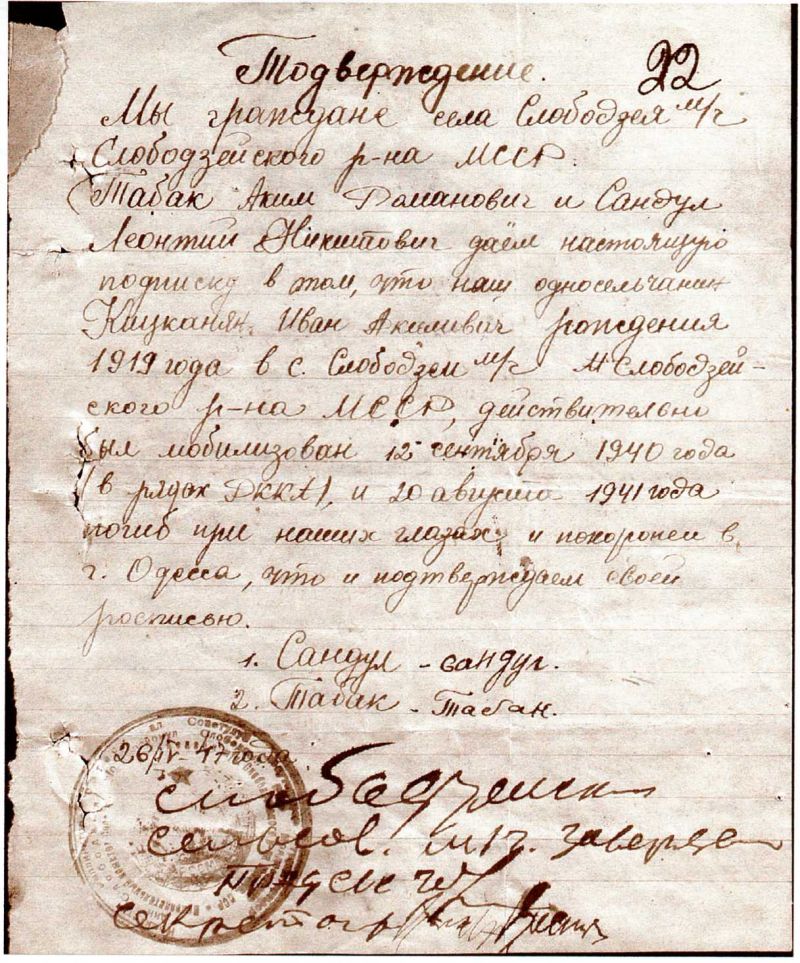 Тодверждение. 22
Мы граждане села Слободзея м/ч
Слободзейского р-на МССР.
Табак Аким Романович и Сандул
Леонтий Никитович даём настоящую
подписку в том, что наш односельчанин
Кицканян Иван Акимивич рождения
1919 года в с. Слободзеи м/ч Слободзей-
ского р-на МССР, действительно
был мобилизован 12 сентября 1940 года
(в рядах РККА), и 20 августа 1941 года
погиб при наших глазах и похоронен в
г. Одесса, что и подтверждаем своей
росписью.
1. Сандул - сандул.
2. Табак - Табак.
26/V-47 года
сельсов. м/ч. заверяет